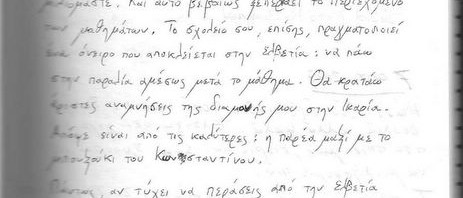 μαζόμαστε. Και αυτό βεβαίως ξεπερνάει το περιεχόμενο
των μαθημάτων. Το σχολείο σου, επίσης, πραγματοποιεί
ένα όνειρο που αποκλείεται στην Ελβετία: να πάω
στην παραλία αμέσως μετά το μάθημα. Θα κρατάω
άριστες αναμνήσεις της διαμονής μου στην Ικαρία.
είναι από τις καλύτερες: η παρέα μαζί με το
μπουζάκι του Κωνσταντίνου.
Πάντως, αν τύχει να περάσεις από την Ελβετία